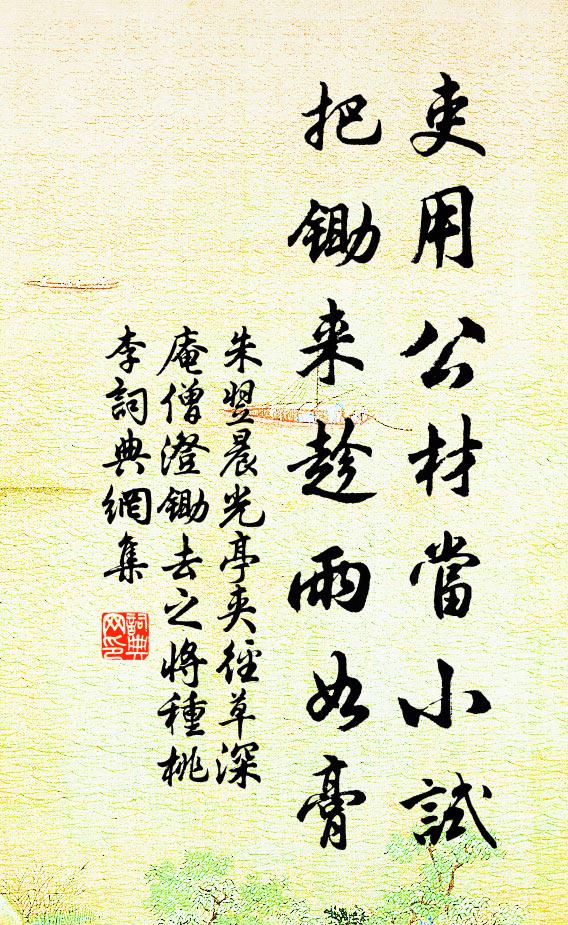 吏用公材當小試
把鋤来趁雨如膏
朱翌晨光亭夾徑草深
庵僧澄鋤去之将種桃
李詞典網集
詞典
网印